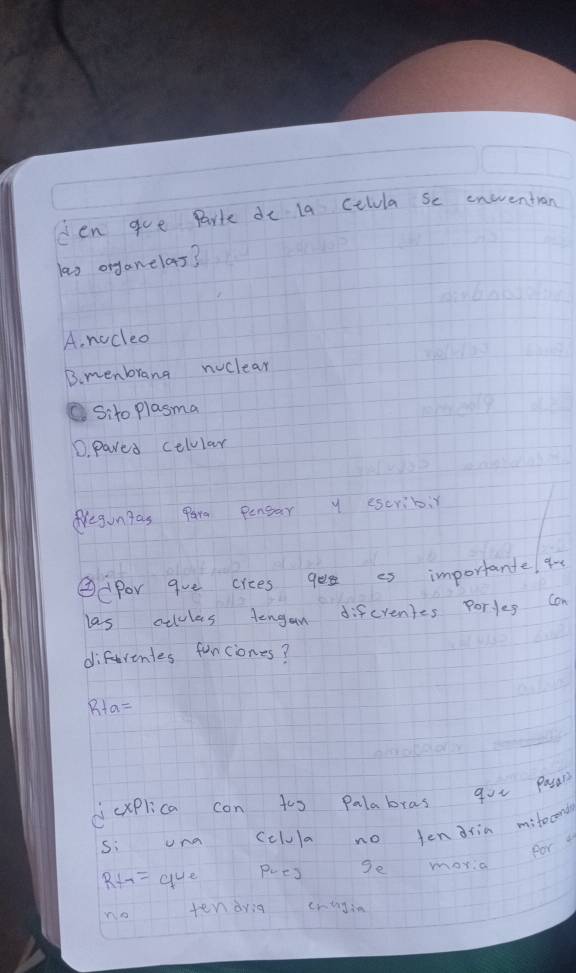 ¿en que Parte de la celula se encuentran
las organelas?
A. nucleo
B. menbrana nuclear
C. Sitoplasma
D. Pared celular
Preguntas Para Pensar y escribir
¿Por que crees que es importante que
las celulas tengan diferentes Partes con
diferentes funciones?
Rta=
¿explica con tus Palabras que Pasaria
si una celula no tendria
Rta= que Pues se moria Por
no tendria